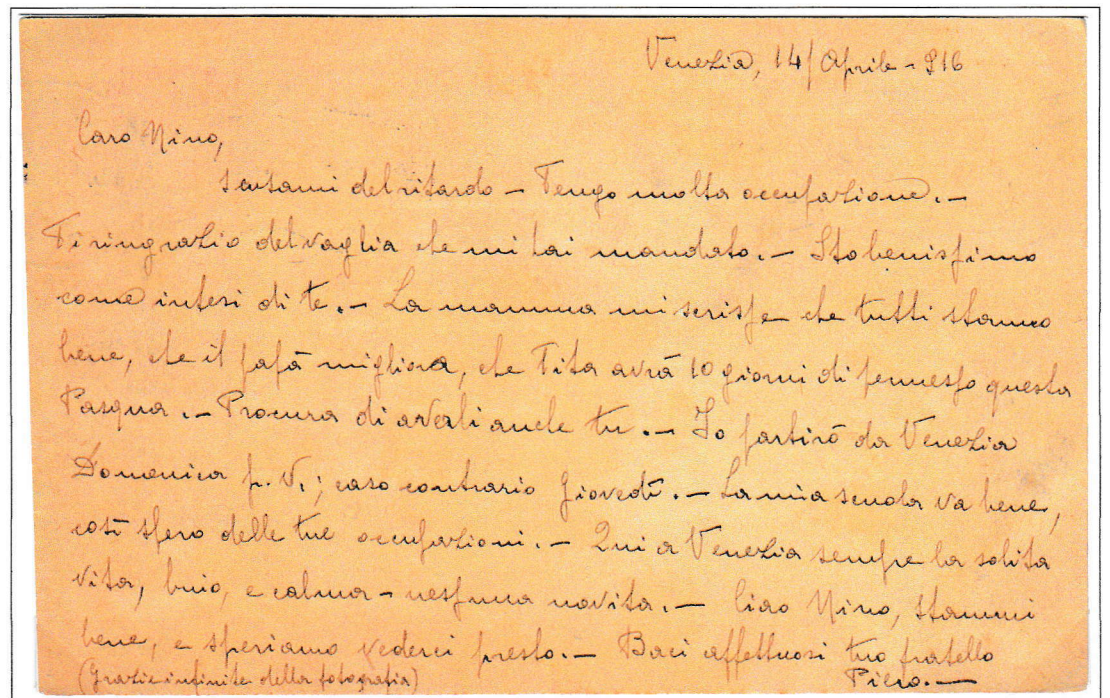 Venezia, 14/Aprile - 916
Caro Nino,
scusami del ritardo – Tengo molta occupazione. –
Ti ringrazio del vaglia che mi hai mandato. – Sto benissimo
come intesi di te. – La mamma mi scrisse che tutti stanno
bene, che il papà migliora, che Tita avrà 10 giorni di permesso questa
Pasqua. – Procura di averli anche tu. – Io partirò da Venezia
Domenica p. v.; caso contrario Giovedì. – La mia scuola va bene,
così spero delle tue occupazioni. – Qui a Venezia sempre la solita
vita, buio, e calma – nessuna novita. – Ciao Nino, stammi
bene, e speriamo vederci presto. – Baci affettuosi tuo fratello
(Grazie infinite della fotografia) Piero. –